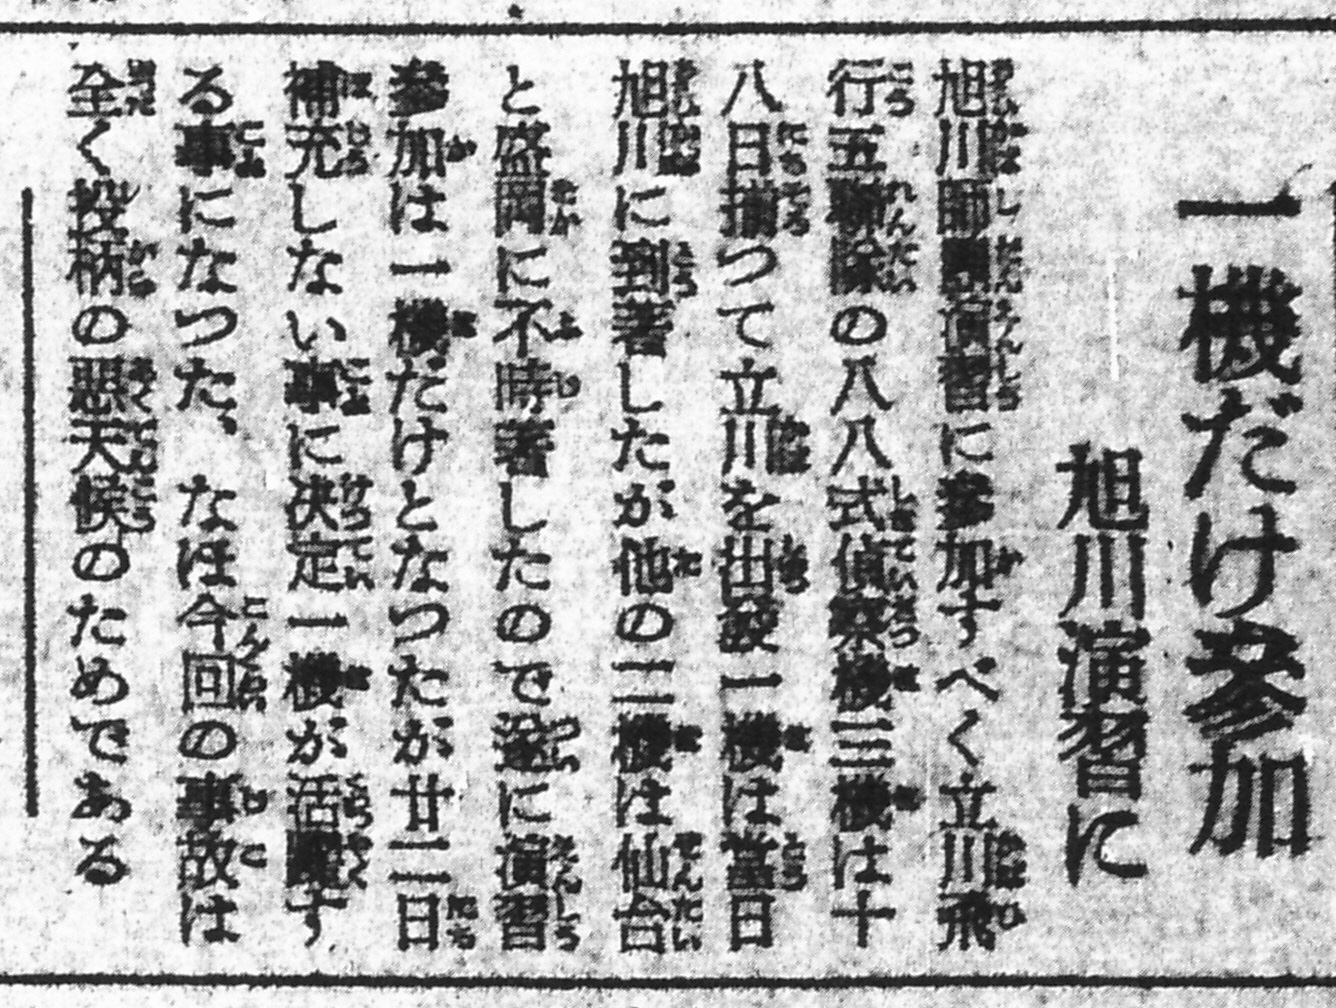 一機だけ参加
旭川演習に
旭川師團演習に參加すべく立川飛
行五聯隊の八八式偵察機三機は十
八日揃つて立川を出發一機は當日
旭川に到著したが他の二機は仙台
と盛岡に不時著したので遂に演習
參加は一機だけとなつたが廿二日
補充しない事に決定一機が活躍す
る事になつた、なほ今回の事故は
全く折柄の悪天候のためである